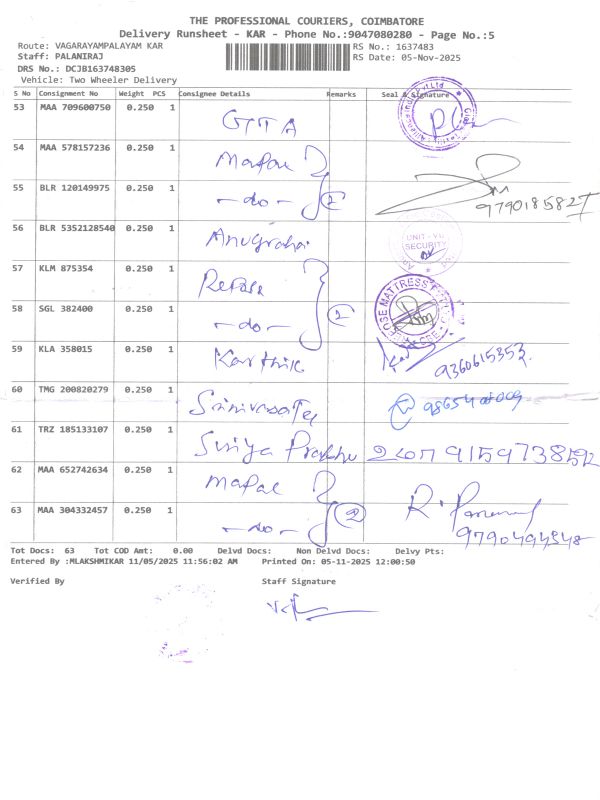 THE PROFESSIONAL COURIERS, COIMBATORE
Delivery Runsheet - KAR - Phone No.:9047080280 - Page No.:5
Route: VAGARAYAMPALAYAM KAR RS No.: 1637483
Staff: PALANIRAJ RS Date: 05-Nov-2025
DRS No.: DCJB163748305
Vehicle: Two Wheeler Delivery
S No Consignment No Weight PCS Consignee Details Remarks Seal & Signature
53 MAA 709600750 0.250 1 GTTA
54 MAA 578157236 0.250 1 Mapal
55 BLR 120149975 0.250 1 -do- 2 9790185827
56 BLR 5352128540 0.250 1 Anugraha UNIT - VII SECURITY
57 KLM 875354 0.250 1
58 SGL 382400 0.250 1 -do- 2
59 KLA 358015 0.250 1 Karthik 9360615353
60 TMG 200820279 0.250 1
61 TRZ 185133107 0.250 1 Suriya Prakash
62 MAA 652742634 0.250 1 Mapal
63 MAA 304332457 0.250 1 -do- 2
Tot Docs: 63 Tot COD Amt: 0.00 Delvd Docs: Non Delvd Docs: Delvy Pts:
Entered By :MLAKSHMIKAR 11/05/2025 11:56:02 AM Printed On: 05-11-2025 12:00:50
Verified By Staff Signature